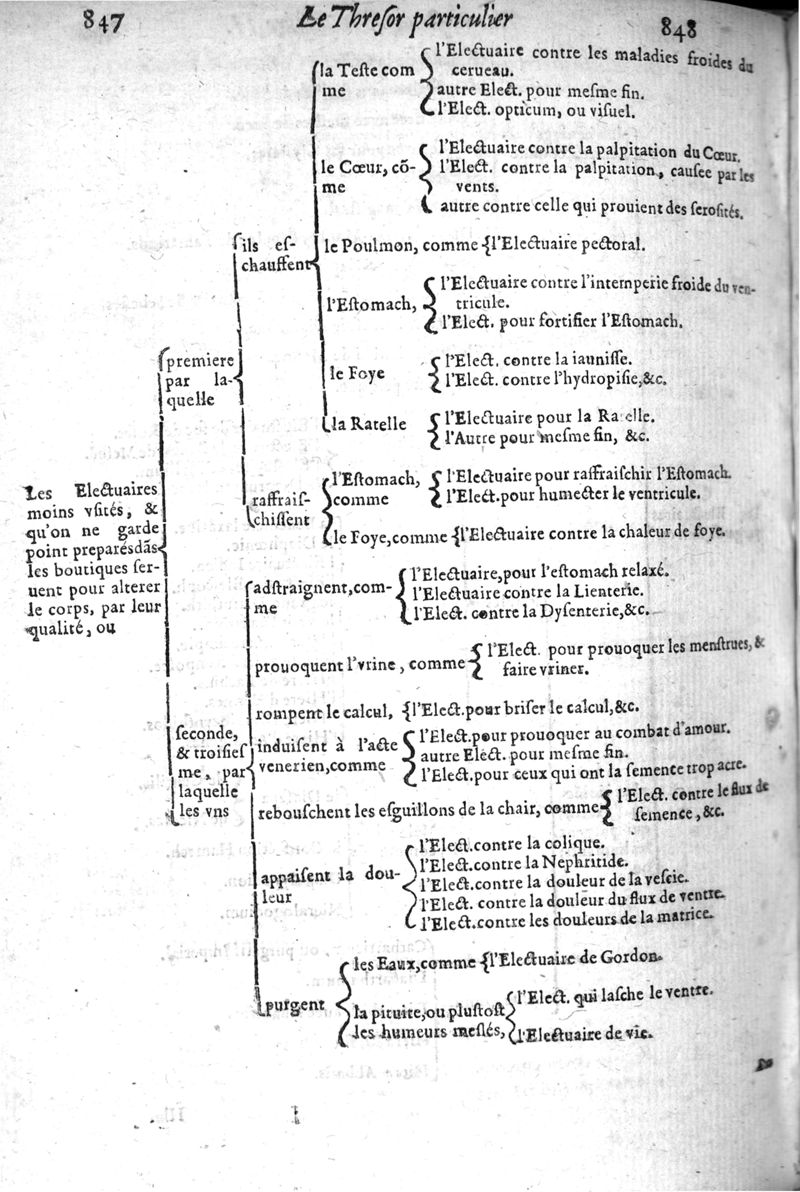 847 Le Thresor particulier 848
Les Electuaires
moins vsités, &
qu'on ne garde
point preparésdãs
les boutiques ser-
uent pour alterer
le corps, par leur
qualité, ou
premiere
par la-
quelle
ils es-
chauffent
la Teste com
me
l'Electuaire contre les maladies froides du
cerueau.
autre Elect. pour mesme fin.
l'Elect. opticum, ou visuel.
le Cœur, cõ-
me
l'Electuaire contre la palpitation du Cœur.
l'Elect. contre la palpitation, causee par les
vents.
autre contre celle qui prouient des serosités.
le Poulmon, comme {l'Electuaire pectoral.
l'Estomach,
l'Electuaire contre l'intemperie froide du ven-
tricule.
l'Elect. pour fortifier l'Estomach.
le Foye
l'Elect. contre la iaunisse.
l'Elect. contre l'hydropisie,&c.
la Ratelle
l'Electuaire pour la Ratelle.
l'Autre pour mesme fin, &c.
raffrais-
chissent
l'Estomach,
comme
l'Electuaire pour raffraischir l'Estomach.
l'Elect.pour humecter le ventricule.
le Foye,comme {l'Electuaire contre la chaleur de foye.
seconde,
& troisies
me, par
laquelle
les vns
adstraignent,com-
me
l'Electuaire,pour l'estomach relaxé.
l'Electuaire contre la Lienterie.
l'Elect. contre la Dysenterie,&c.
prouoquent l'vrine, comme
l'Elect. pour prouoquer les menstrues, &
faire vriner.
rompent le calcul, {l'Elect.pour briser le calcul,&c.
induisent à l'acte
venerien,comme
l'Elect.pour prouoquer au combat d'amour.
autre Elect. pour mesme fin.
l'Elect.pour ceux qui ont la semence trop acre.
rebouschent les esguillons de la chair, comme
l'Elect. contre le flux de
semence, &c.
appaisent la dou-
leur
l'Elect.contre la colique.
l'Elect.contre la Nephritide.
l'Elect.contre la douleur de la vescie.
l'Elect. contre la douleur du flux de ventre.
l'Elect.contre les douleurs de la matrice.
purgent
les Eaux,comme {l'Electuaire de Gordon.
la pituite,ou plustost
les humeurs meslés,
l'Elect. qui lasche le ventre.
l'Electuaire de vie.